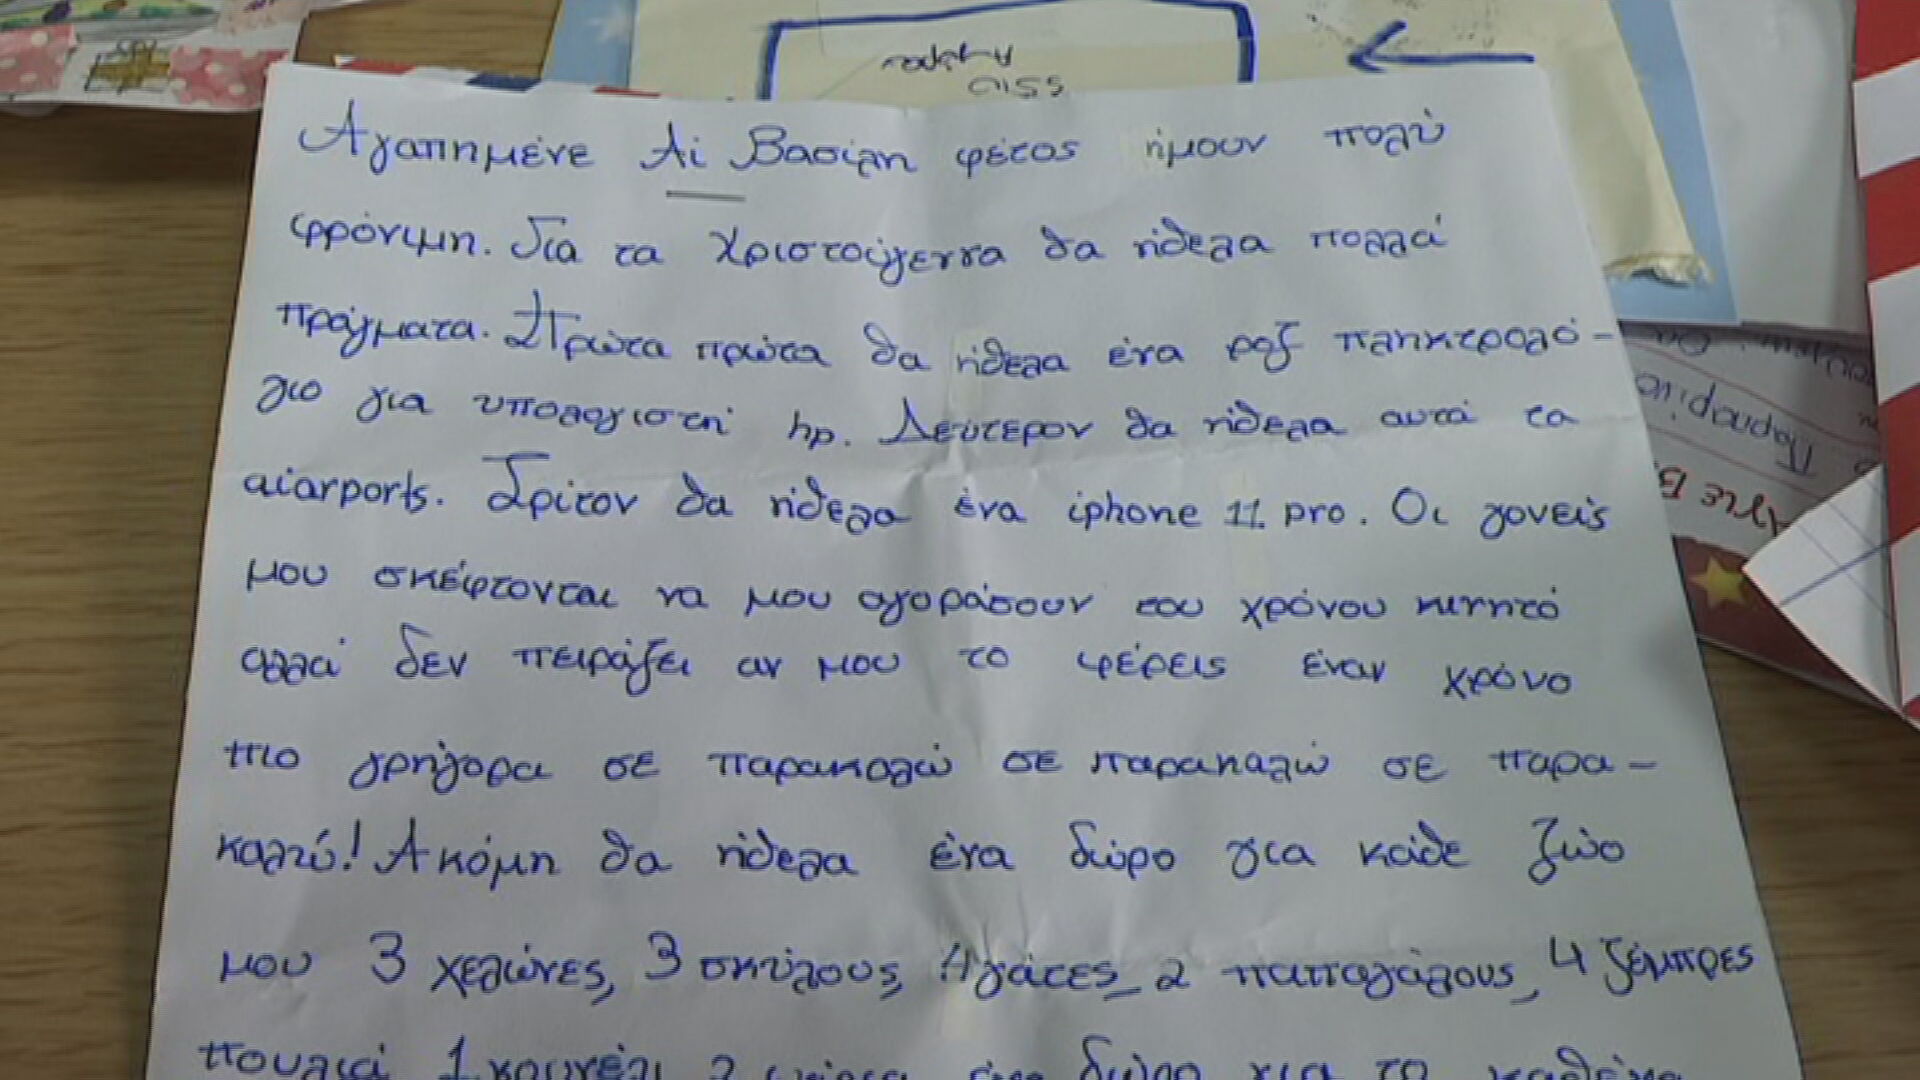 Αγαπημένε Αϊ Βασίλη φέτος ήμουν πολύ
φρόνιμη. Για τα Χριστούγεννα θα ήθελα πολλά
πράγματα. Πρώτα πρώτα θα ήθελα ένα ροζ πληκτρολό-
γιο για υπολογιστή hp. Δεύτερον θα ήθελα αυτά τα
aiarports. Τρίτον θα ήθελα ένα iphone 11 pro. Οι γονείς
μου σκέφτονται να μου αγοράσουν του χρόνου κινητό
αλλά δεν πειράζει αν μου το φέρεις έναν χρόνο
πιο γρήγορα σε παρακαλώ σε παρακαλώ σε παρα-
καλώ! Ακόμη θα ήθελα ένα δώρο για κάθε ζώο
μου 3 χελώνες, 3 σκύλους, 4 γάτες, 2 παπαγάλους, 4 ζέμπρες
πουλιά 1 κουνέλι 2 ένα δώρο για το καθένα